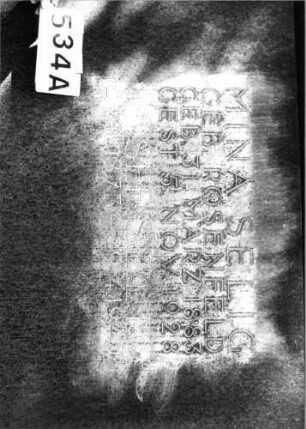 534A
MINA SELIG
GEB. ROSENFELD
GEB. 31. MÄRZ 1883
GEST. 5. NOV. 1928